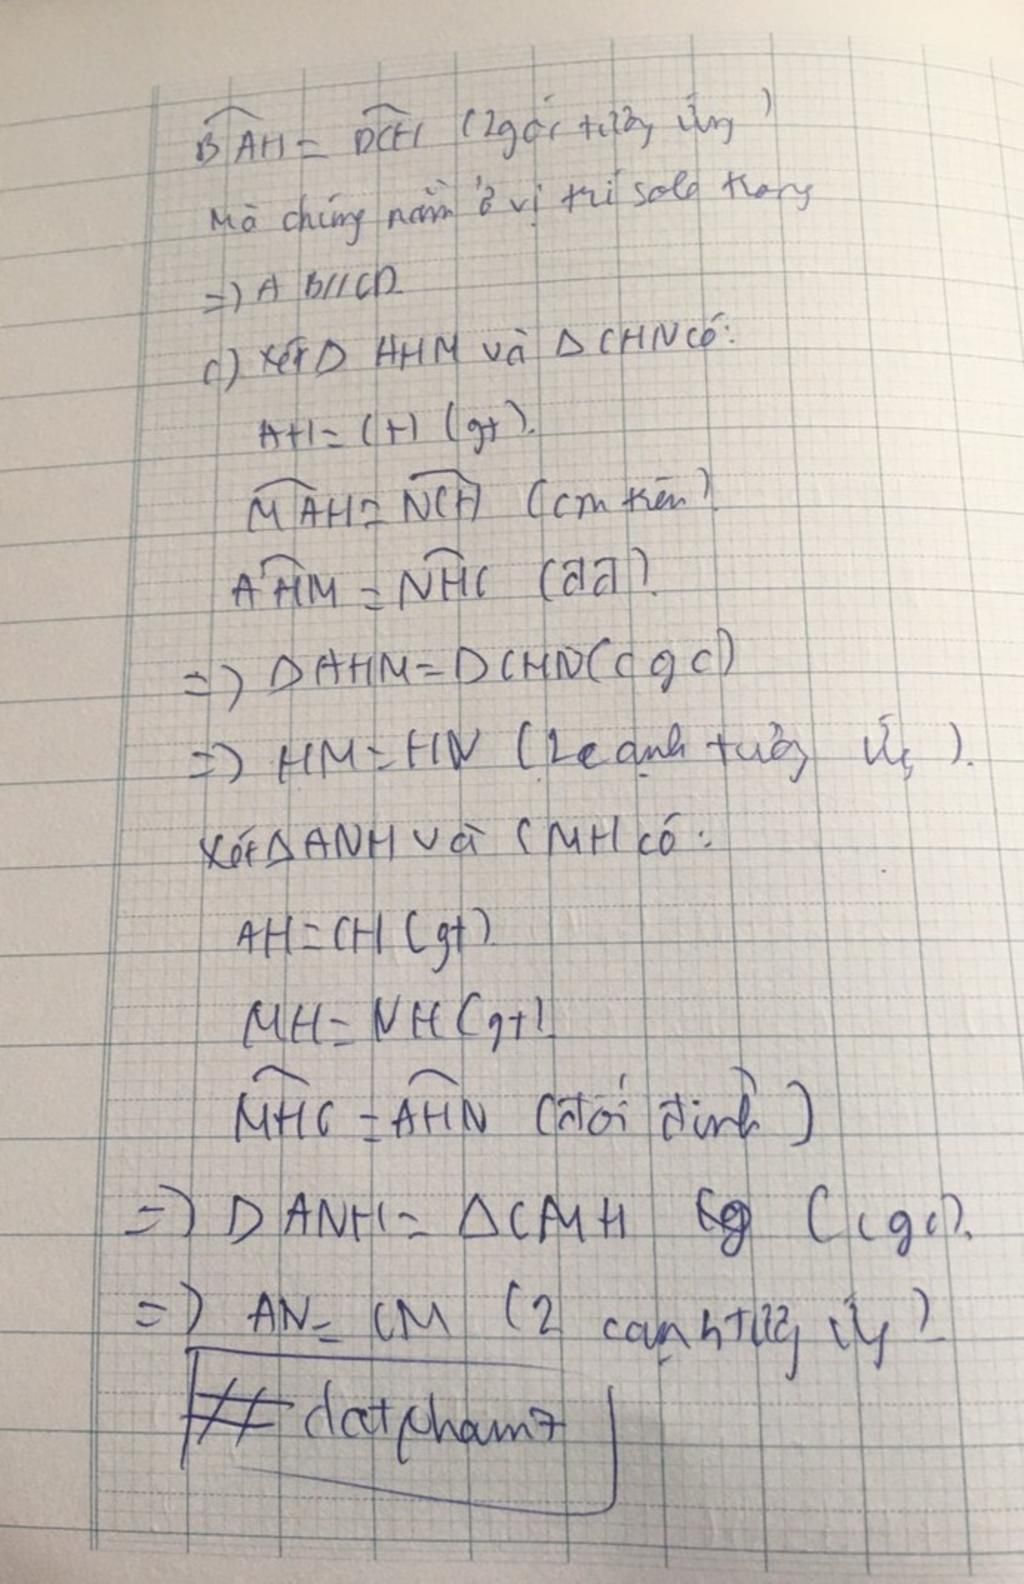 BAH = DCH (2 góc tương ứng)
Mà chúng nằm ở vị trí sole trong
=) AB//CD
c) Xét Δ AHM và Δ CHN có:
AH = CH (gt).
MAH = NCH (cm trên)
AHM = NHC (đđ).
=) Δ AHM = Δ CHN (c g c)
=) HM = HN (2 cạnh tương ứng).
Xét Δ ANH và CMH có:
AH = CH (gt)
MH = NH (gt)
MHC = AHN (đối đỉnh)
=) Δ ANH = Δ CMH (cgc).
=) AN = CM (2 cạnh tương ứng)
# datpham7